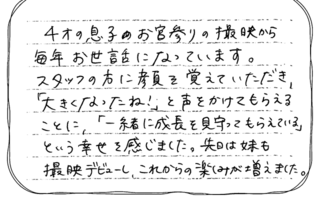 4才の息子のお宮参りの撮映から
毎年お世話になっています。
スタッフの方に顔を覚えていただき、
「大きくなったね!」と声をかけてもらえる
ことに、「一緒に成長を見守ってもらえている」
という幸せを感じました。先日は妹も
撮映デビューし、これからの楽しみが増えました。